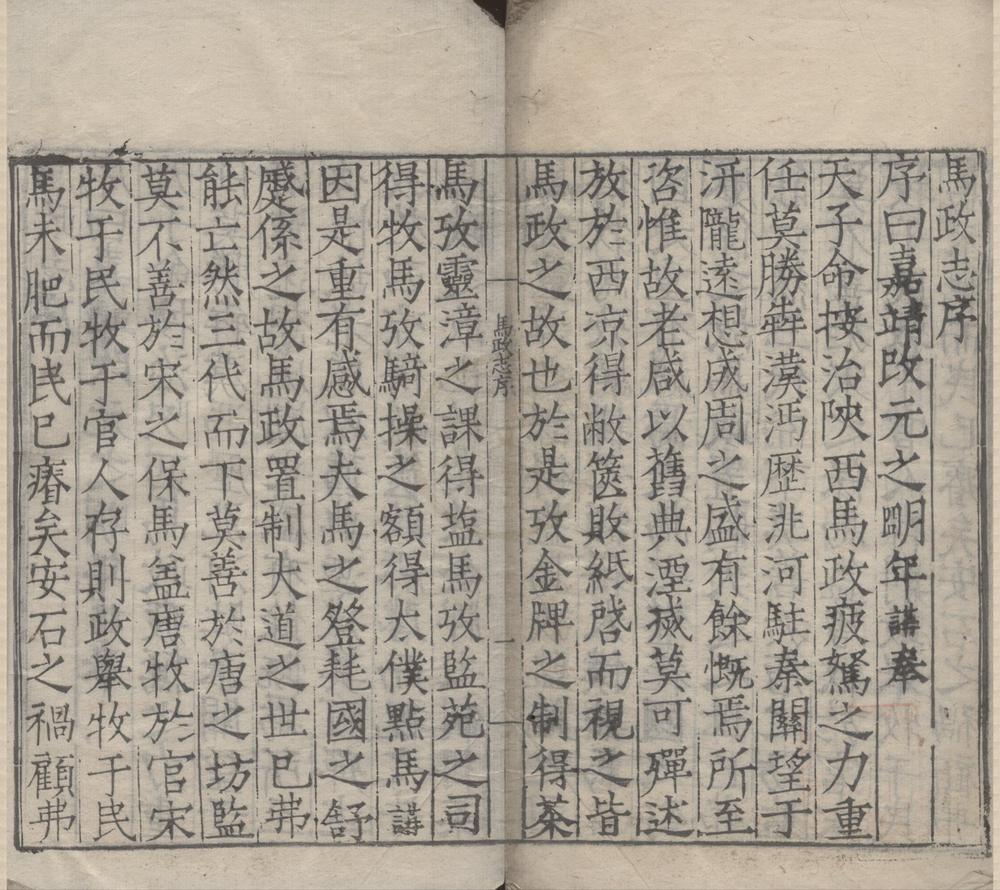 馬政志序
序曰嘉靖改元之明年講奉
天子命按治陝西馬政疲駑之力重
任莫勝犇漠沔歷洮河駐秦關望于
汧隴遠想成周之盛有餘慨焉所至
咨惟故老咸以舊典湮㓕莫可殫述
放於西凉得敝篋敗紙啓而視之皆
馬政之故也於是攷金牌之制得茶
馬政志序
一
馬攷靈漳之課得塩馬攷監苑之司
得牧馬攷騎操之額得太僕點馬講
因是重有感焉夫馬之登耗國之舒
蹙係之故馬政置制大道之世已弗
能亡然三代而下莫善於唐之坊監
莫不善於宋之保馬盖唐牧於官宋
牧于民牧于官人存則政舉牧于民
馬未肥而民已瘠矣安石之禍顧弗